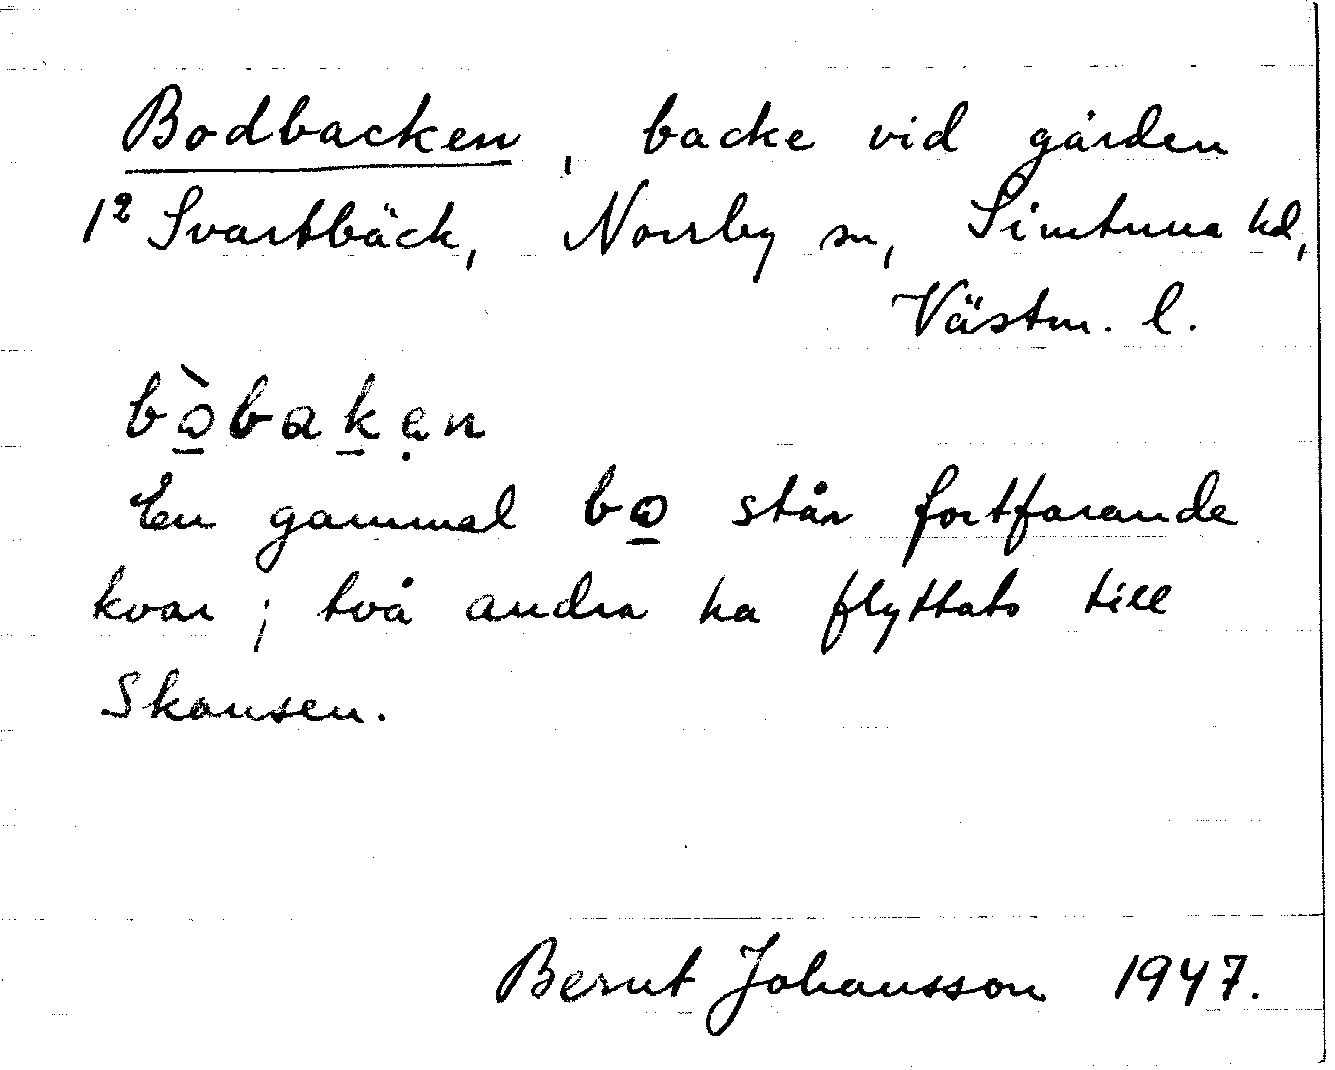 Bodbacken, backe vid gården
1² Svartbäck, Norrby sn, Simtuna hd,
Västm. l.
bò̲bak̲ạn
En gammal bo̲ står fortfarande
kvar; två andra ha flyttats till
Skansen.
Bernt Johansson 1947.